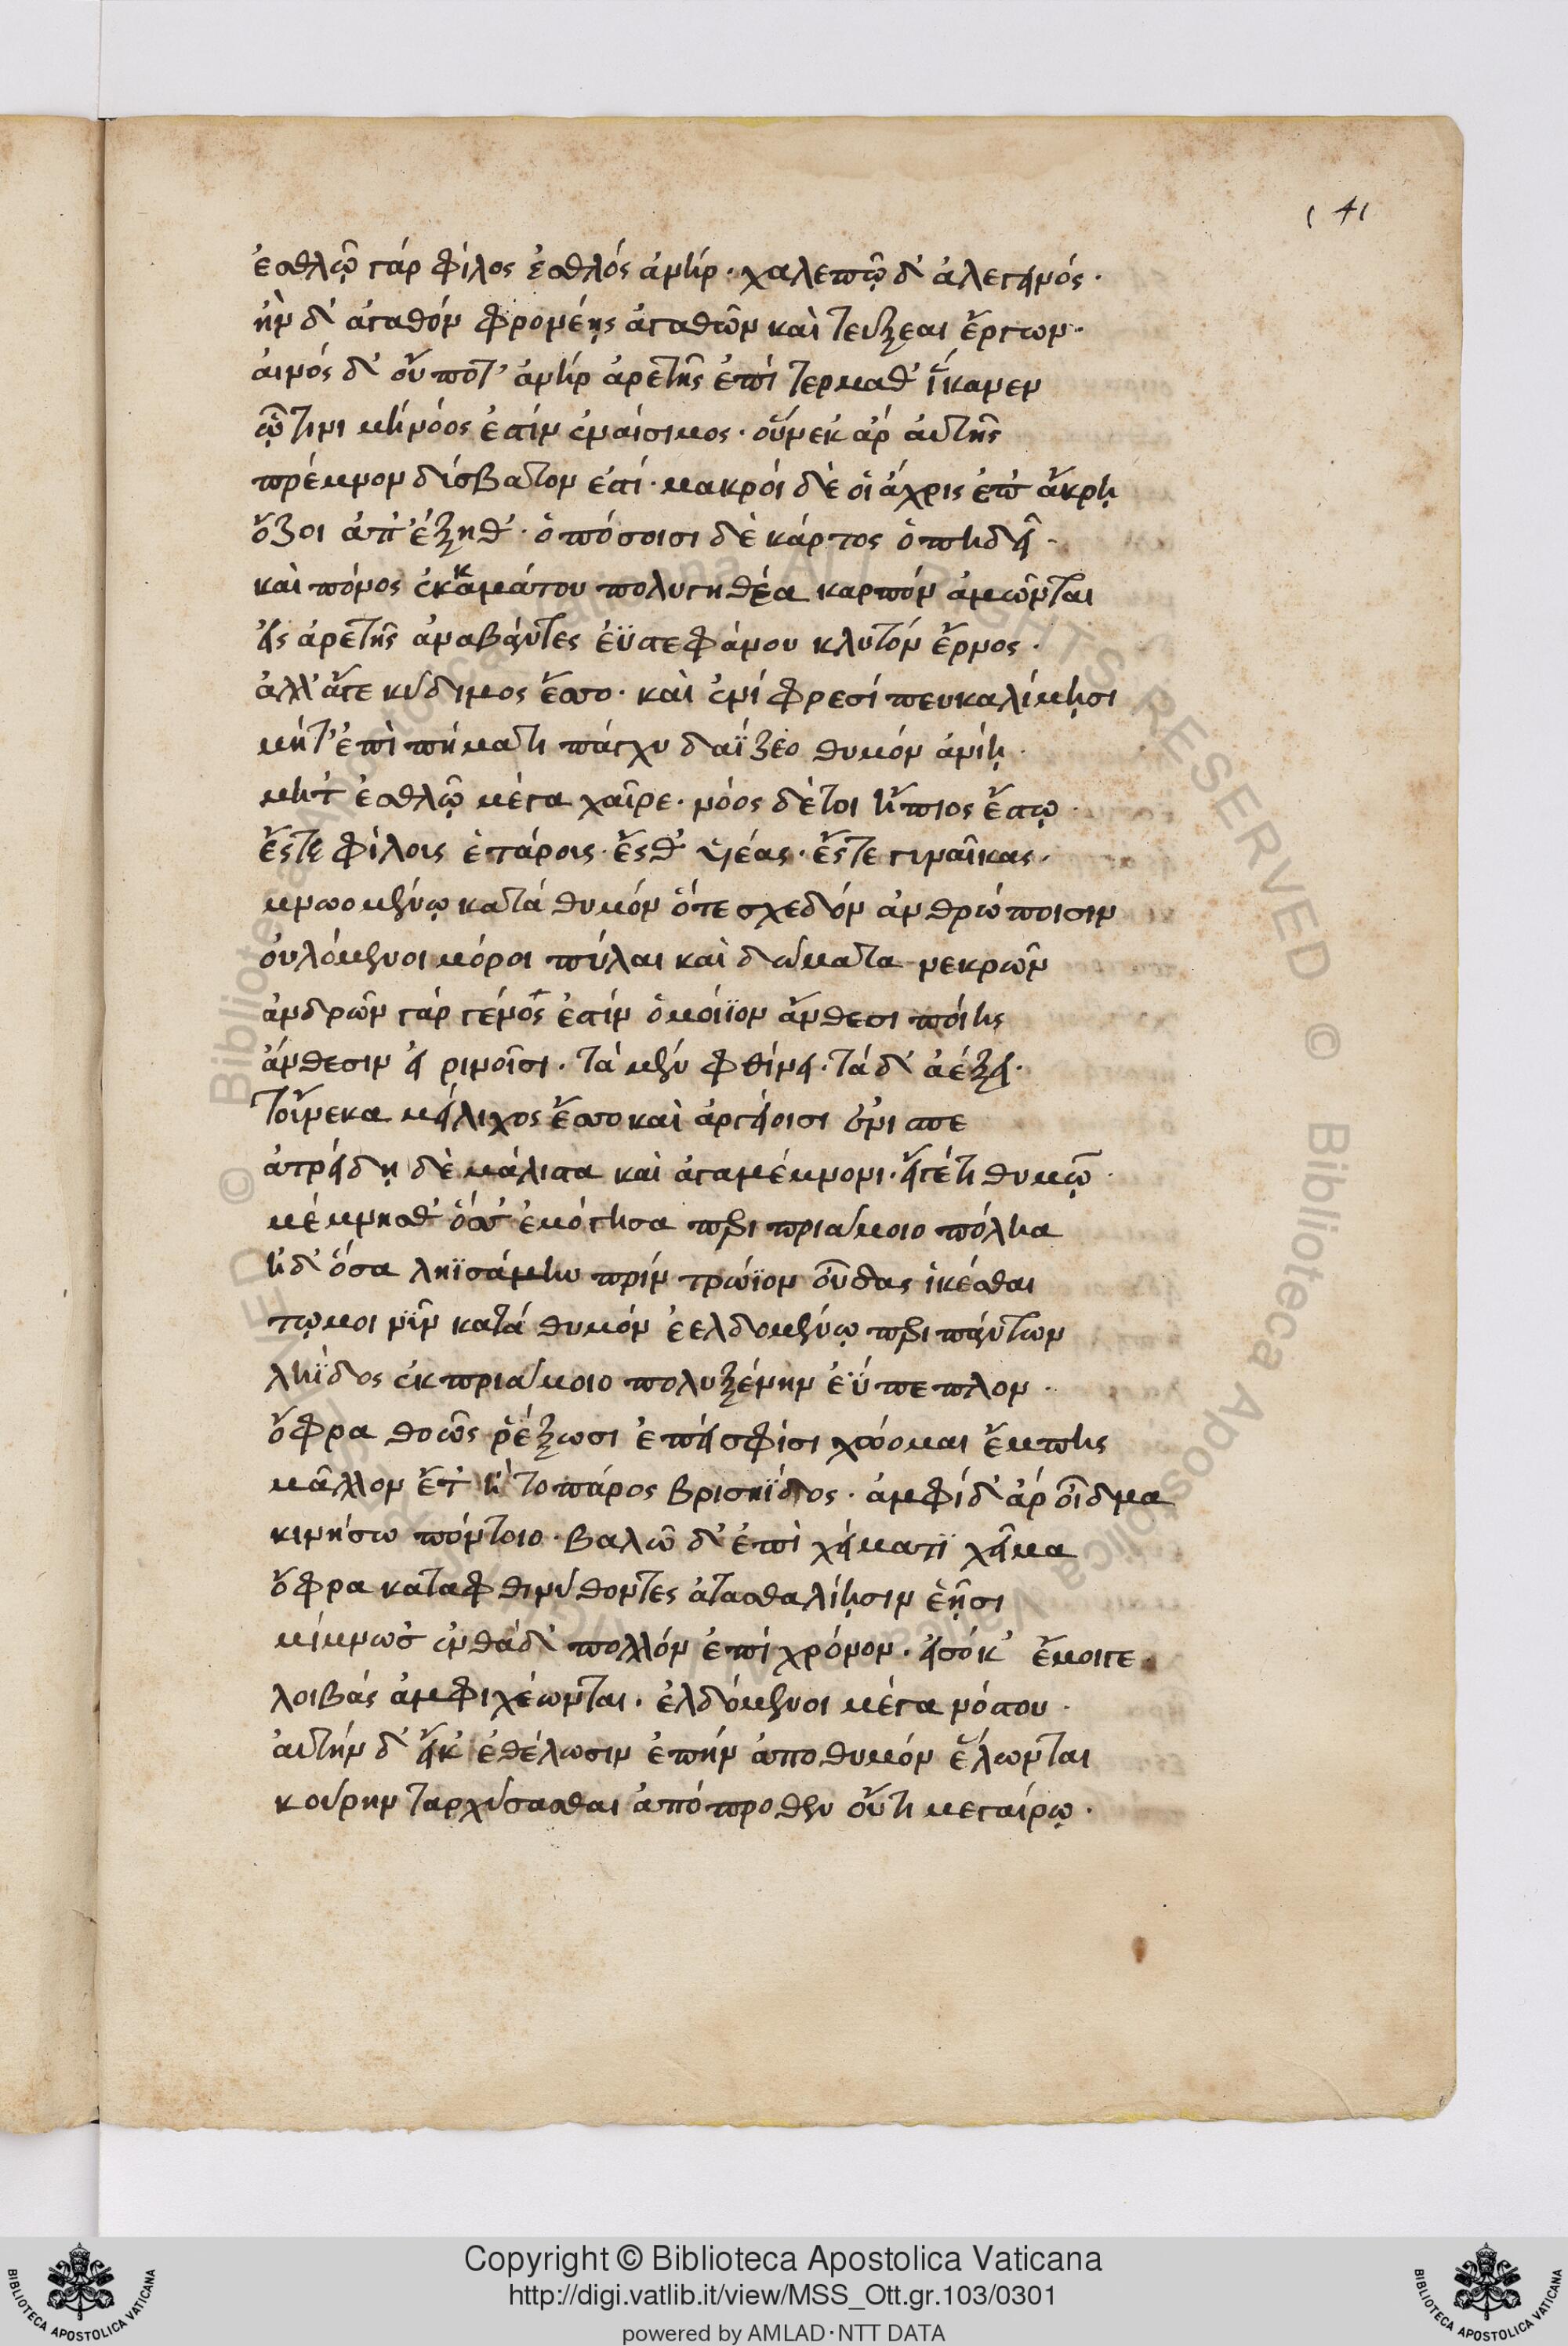 141
ἐσθλῷ γάρ φίλος ἐσθλός ἀνήρ· χαλεπῷ δ' ἀλεγεινός·
ἢν δ' ἀγαθόν φρονέῃς ἀγαθῶν καὶ τεύξεαι ἔργων·
αἰνός δ' οὔποτ' ἀνήρ ἀρετῆς ἐπί τερμαθ' ἵκανεν
ᾧτινι μή νόος ἐστίν ἐναίσιμος· οὕνεκ' ἀρ' ἀυτῆς
πρέμνον δύσβατον ἐστί· μακροί δὲ οἱ ἄχρις ἐπ' ἄκρῃ
ὄζοι ἀπ' ἐξηθ'· ὁπόσοισι δὲ κάρτος ὀπηδεῖ·
καὶ πόνος ἐκ καμάτου πολυγηθέα καρπόν ἀμῶνται
εἰς ἀρετῆς ἀναβάντες ἐϋστεφάνου κλυτόν ἔρνος·
ἀλλ' ἄγε κύδιμος ἔσσο· καὶ ἐνί φρεσί πευκαλίμῃσι
μήτ' ἐπὶ πήματι πάγχυ δαΐζεο θυμόν ἀνίῃ·
μήτ' ἐσθλῷ μέγα χαῖρε· νόος δέ τοι ἤπιος ἔστω·
ἔς τε φίλοις ἑτάροις· ἔς θ' υἱέας· ἔς τε γυναῖκας·
μνωομένῳ κατά θυμόν ὅτε σχεδόν ἀνθρώποισιν
οὐλόμενοι μόροι πύλαι καὶ δώματα νεκρῶν
ἀνδρῶν γάρ γένος ἐστίν ὁμοίϊον ἄνθεσι ποίης
ἄνθεσιν εἰαρινοῖσι· τὰ μέν φθίνει· τά δ' ἀέξει·
τοὔνεκα μείλιχος ἔσσο καὶ ἀργείοισι ἔνισπε
ἀτρείδῃ δὲ μάλιστα καὶ ἀγαμέμνονι· εἴγε τι θυμῷ·
μέμνησθ' ὅσσ' ἐμόγησα περι πριάμοιο πόληα
ἠδ' ὅσα ληϊσάμην πρίν τρώϊον οὖδας ἱκέσθαι
τῷ μοι νῦν κατά θυμόν ἐελδομένῳ περι πάντων
ληΐδος ἐκ πριάμοιο πολυξένην ἐΰπεπλον·
ὄφρα θοῶς ῥέξωσι ἐπεί σφισι χώομαι ἔμπης
μᾶλλον ἔτ' ἢ τοπάρος βρισηΐδος· ἀμφί δ' ἀρ' οἶδμα
κινήσω πόντοιο· βαλῶ δ' ἐπὶ χείματι χεῖμα
ὄφρα καταφθινύθοντες ἀτασθαλίῃσιν ἑῇσι
μίμνωσ' ἐνθάδ' πολλόν ἐπί χρόνον· εἰσόκ' ἔμοιγε
λοιβάς ἀμφιχέωνται· ἐλδόμενοι μέγα νόστου·
ἀυτήν δ' εἴκ' ἐθέλωσιν ἐπήν ἀπο θυμόν ἕλωνται
κούρην ταρχύσασθαι ἀπόπροθεν οὔτι μεγαίρω·
Copyright © Biblioteca Apostolica Vaticana
http://digi.vatlib.it/view/MSS_Ott.gr.103/0301
powered by AMLAD·NTT DATA
BIBLIOTECA APOSTOLICA VATICANA
BIBLIOTECA APOSTOLICA VATICANA